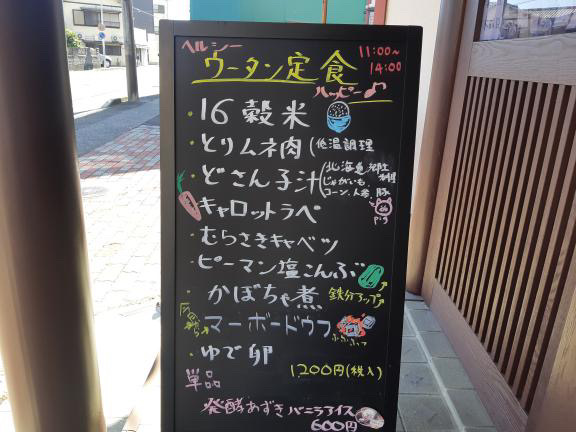 ヘルシー
ウータン定食
11:00~
14:00
ハッピー♪
・16穀米
・とりムネ肉(低温調理
・どさん子汁(北海道郷土料理
じゃがいも、
コーン、人参、豚
pig
・キャロットラペ
・むらさきキャベツ
・ピーマン塩こんぶ
・かぼちゃ煮 鉄分アップ
マーボードウフ
・ゆで卵
1200円(税込)
単品
発酵あずきバニラアイス
600円